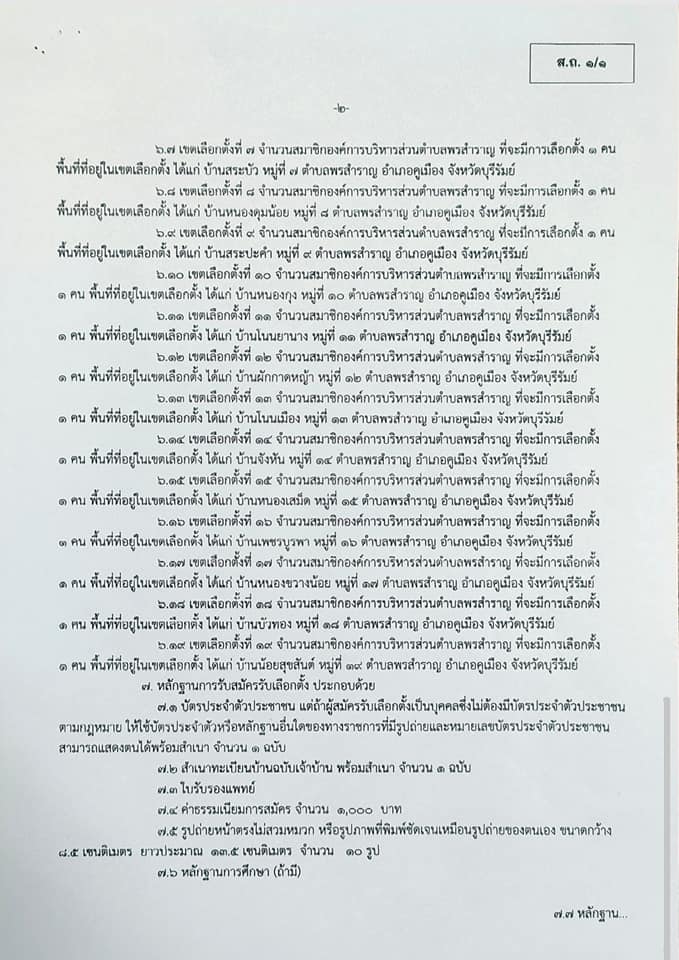 ส.ถ. ๑/๑
-๒-
๖.๗ เขตเลือกตั้งที่ ๗ จำนวนสมาชิกองค์การบริหารส่วนตำบลพรสำราญ ที่จะมีการเลือกตั้ง ๑ คน
พื้นที่ที่อยู่ในเขตเลือกตั้ง ได้แก่ บ้านสระบัว หมู่ที่ ๗ ตำบลพรสำราญ อำเภอคูเมือง จังหวัดบุรีรัมย์
๖.๘ เขตเลือกตั้งที่ ๘ จำนวนสมาชิกองค์การบริหารส่วนตำบลพรสำราญ ที่จะมีการเลือกตั้ง ๑ คน
พื้นที่ที่อยู่ในเขตเลือกตั้ง ได้แก่ บ้านหนองดุมน้อย หมู่ที่ ๘ ตำบลพรสำราญ อำเภอคูเมือง จังหวัดบุรีรัมย์
๖.๙ เขตเลือกตั้งที่ ๙ จำนวนสมาชิกองค์การบริหารส่วนตำบลพรสำราญ ที่จะมีการเลือกตั้ง ๑ คน
พื้นที่ที่อยู่ในเขตเลือกตั้ง ได้แก่ บ้านสระปะคำ หมู่ที่ ๙ ตำบลพรสำราญ อำเภอคูเมือง จังหวัดบุรีรัมย์
๖.๑๐ เขตเลือกตั้งที่ ๑๐ จำนวนสมาชิกองค์การบริหารส่วนตำบลพรสำราญ ที่จะมีการเลือกตั้ง
๑ คน พื้นที่ที่อยู่ในเขตเลือกตั้ง ได้แก่ บ้านหนองกุง หมู่ที่ ๑๐ ตำบลพรสำราญ อำเภอคูเมือง จังหวัดบุรีรัมย์
๖.๑๑ เขตเลือกตั้งที่ ๑๑ จำนวนสมาชิกองค์การบริหารส่วนตำบลพรสำราญ ที่จะมีการเลือกตั้ง
๑ คน พื้นที่ที่อยู่ในเขตเลือกตั้ง ได้แก่ บ้านโนนยานาง หมู่ที่ ๑๑ ตำบลพรสำราญ อำเภอคูเมือง จังหวัดบุรีรัมย์
๖.๑๒ เขตเลือกตั้งที่ ๑๒ จำนวนสมาชิกองค์การบริหารส่วนตำบลพรสำราญ ที่จะมีการเลือกตั้ง
๑ คน พื้นที่ที่อยู่ในเขตเลือกตั้ง ได้แก่ บ้านผักกาดหญ้า หมู่ที่ ๑๒ ตำบลพรสำราญ อำเภอคูเมือง จังหวัดบุรีรัมย์
๖.๑๓ เขตเลือกตั้งที่ ๑๓ จำนวนสมาชิกองค์การบริหารส่วนตำบลพรสำราญ ที่จะมีการเลือกตั้ง
๑ คน พื้นที่ที่อยู่ในเขตเลือกตั้ง ได้แก่ บ้านโนนเมือง หมู่ที่ ๑๓ ตำบลพรสำราญ อำเภอคูเมือง จังหวัดบุรีรัมย์
๖.๑๔ เขตเลือกตั้งที่ ๑๔ จำนวนสมาชิกองค์การบริหารส่วนตำบลพรสำราญ ที่จะมีการเลือกตั้ง
๑ คน พื้นที่ที่อยู่ในเขตเลือกตั้ง ได้แก่ บ้านจังหัน หมู่ที่ ๑๔ ตำบลพรสำราญ อำเภอคูเมือง จังหวัดบุรีรัมย์
๖.๑๕ เขตเลือกตั้งที่ ๑๕ จำนวนสมาชิกองค์การบริหารส่วนตำบลพรสำราญ ที่จะมีการเลือกตั้ง
๑ คน พื้นที่ที่อยู่ในเขตเลือกตั้ง ได้แก่ บ้านหนองเสม็ด หมู่ที่ ๑๕ ตำบลพรสำราญ อำเภอคูเมือง จังหวัดบุรีรัมย์
๖.๑๖ เขตเลือกตั้งที่ ๑๖ จำนวนสมาชิกองค์การบริหารส่วนตำบลพรสำราญ ที่จะมีการเลือกตั้ง
๑ คน พื้นที่ที่อยู่ในเขตเลือกตั้ง ได้แก่ บ้านเพชรบูรพา หมู่ที่ ๑๖ ตำบลพรสำราญ อำเภอคูเมือง จังหวัดบุรีรัมย์
๖.๑๗ เขตเลือกตั้งที่ ๑๗ จำนวนสมาชิกองค์การบริหารส่วนตำบลพรสำราญ ที่จะมีการเลือกตั้ง
๑ คน พื้นที่ที่อยู่ในเขตเลือกตั้ง ได้แก่ บ้านหนองขวางน้อย หมู่ที่ ๑๗ ตำบลพรสำราญ อำเภอคูเมือง จังหวัดบุรีรัมย์
๖.๑๘ เขตเลือกตั้งที่ ๑๘ จำนวนสมาชิกองค์การบริหารส่วนตำบลพรสำราญ ที่จะมีการเลือกตั้ง
๑ คน พื้นที่ที่อยู่ในเขตเลือกตั้ง ได้แก่ บ้านบัวทอง หมู่ที่ ๑๘ ตำบลพรสำราญ อำเภอคูเมือง จังหวัดบุรีรัมย์
๖.๑๙ เขตเลือกตั้งที่ ๑๙ จำนวนสมาชิกองค์การบริหารส่วนตำบลพรสำราญ ที่จะมีการเลือกตั้ง
๑ คน พื้นที่ที่อยู่ในเขตเลือกตั้ง ได้แก่ บ้านน้อยสุขสันต์ หมู่ที่ ๑๙ ตำบลพรสำราญ อำเภอคูเมือง จังหวัดบุรีรัมย์
๗. หลักฐานการรับสมัครรับเลือกตั้ง ประกอบด้วย
๗.๑ บัตรประจำตัวประชาชน แต่ถ้าผู้สมัครรับเลือกตั้งเป็นบุคคลซึ่งไม่ต้องมีบัตรประจำตัวประชาชน
ตามกฎหมาย ให้ใช้บัตรประจำตัวหรือหลักฐานอื่นใดของทางราชการที่มีรูปถ่ายและหมายเลขบัตรประจำตัวประชาชน
สามารถแสดงตนได้พร้อมสำเนา จำนวน ๑ ฉบับ
๗.๒ สำเนาทะเบียนบ้านฉบับเจ้าบ้าน พร้อมสำเนา จำนวน ๑ ฉบับ
๗.๓ ใบรับรองแพทย์
๗.๔ ค่าธรรมเนียมการสมัคร จำนวน ๑,๐๐๐ บาท
๗.๕ รูปถ่ายหน้าตรงไม่สวมหมวก หรือรูปภาพที่พิมพ์ชัดเจนเหมือนรูปถ่ายของตนเอง ขนาดกว้าง
๘.๕ เซนติเมตร ยาวประมาณ ๑๓.๕ เซนติเมตร จำนวน ๑๐ รูป
๗.๖ หลักฐานการศึกษา (ถ้ามี)
๗.๗ หลักฐาน...